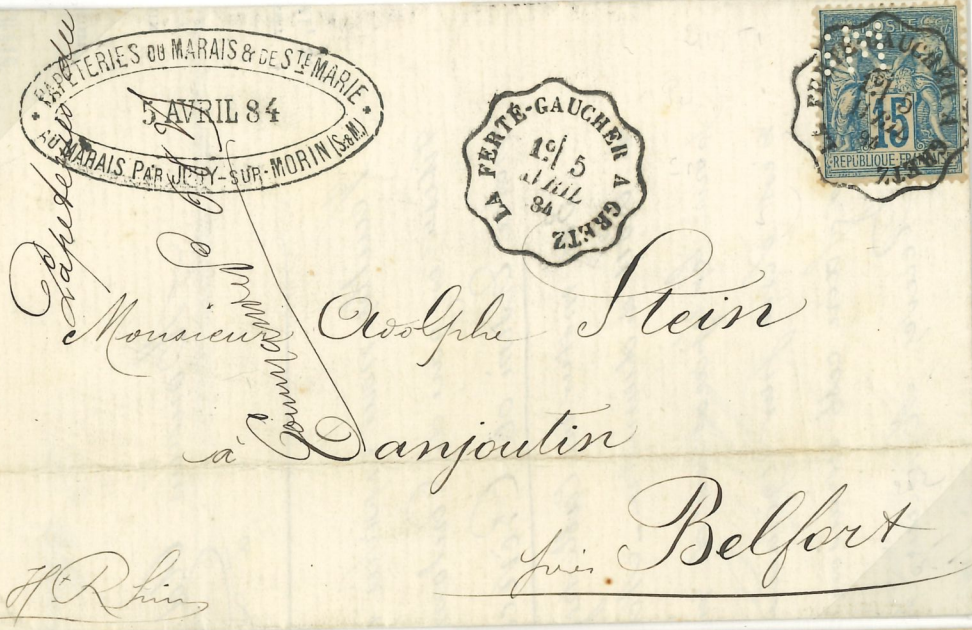 PAPETERIES DU MARAIS & DE STE MARIE
5 AVRIL 84
AU MARAIS PAR JOUY-SUR-MORIN (S&M.)
LA FERTÉ-GAUCHER A GRETZ
1E/ 5
AVRIL
84
FERTÉ-GAUCHER A GRETZ
15
REPUBLIQUE FRA
Papeteries du
Monsieur Adolphe Stein
à Danjoutin
près Belfort
Ht Rhin